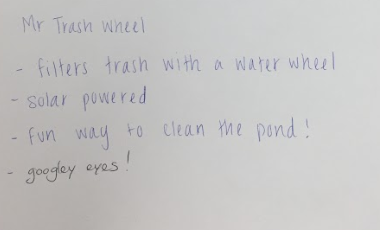 Mr Trash Wheel
- filters trash with a water wheel
- solar powered
- fun way to clean the pond!
- googley eyes!